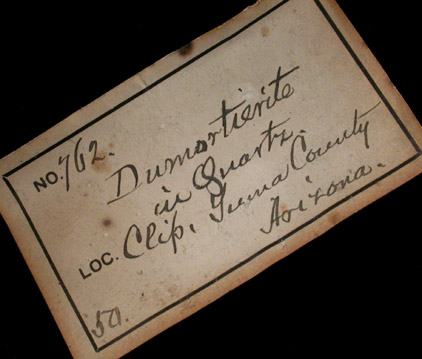 NO. 762.
Dumortierite
in Quartz.
LOC. Clip, Yuma County
Arizona.
50.